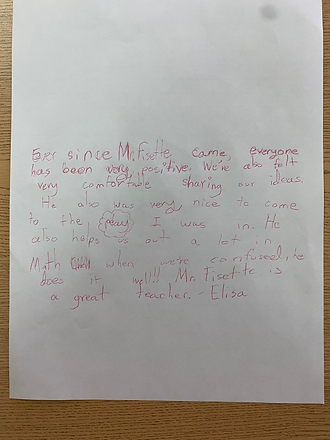 Ever since Mr. Fisette came, everyone
has been very positive. We've also felt
very comfortable sharing our ideas.
He also was very nice to come
to the play I was in. He
also helps us out a lot in
Math when we're confused
does it well!! Mr. Fisette is
a great teacher. - Elisa